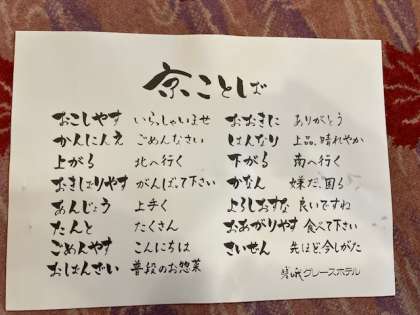 京ことば
おこしやす いらっしゃいませ
かんにんえ ごめんなさい
上がる 北へ行く
おきばりやす がんばって下さい
あんじょう 上手く
たんと たくさん
ごめんやす こんにちは
おばんざい 普段のお惣菜
おおきに ありがとう
はんなり 上品、晴れやか
下がる 南へ行く
かなん 嫌だ、困る
よろしおすな 良いですね
おあがりやす 食べて下さい
さいぜん 先ほど、今しがた
嵯峨グレースホテル